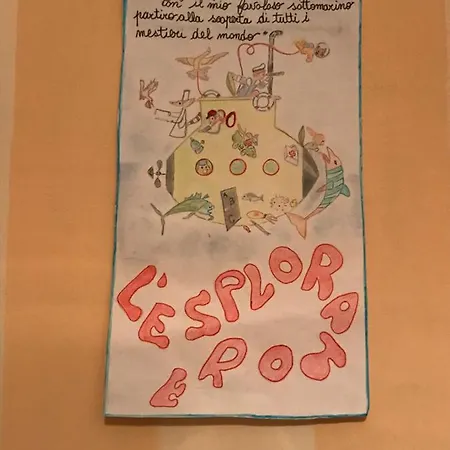 con il mio favoloso sottomarino
partirò alla scoperta di tutti i
mestieri del mondo
L'ESPLORATORE